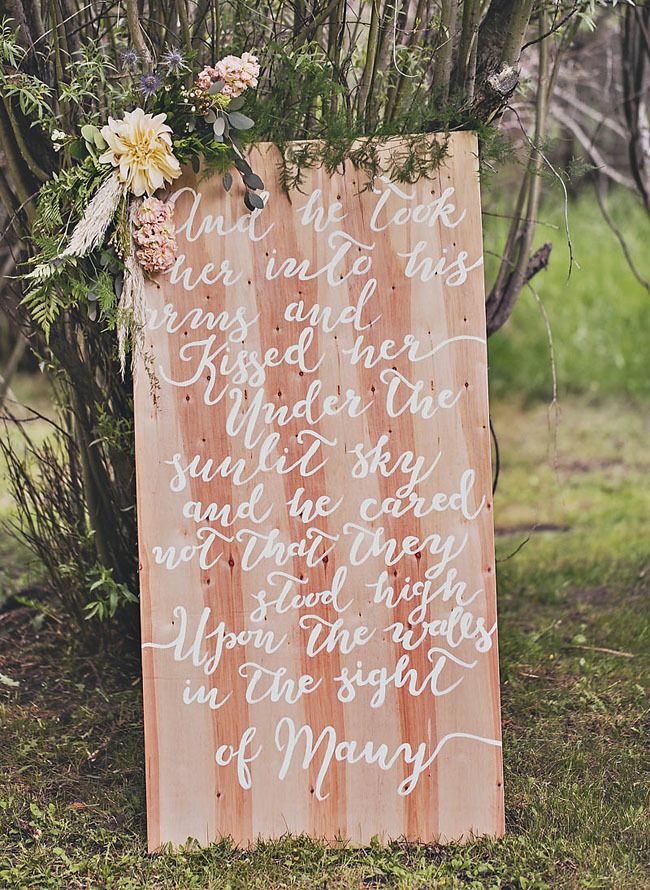 And he took
her into his
arms and
Kissed her
Under the
sunlit sky
and he cared
not that they
stood high
Upon the wales
in the sight
of Many